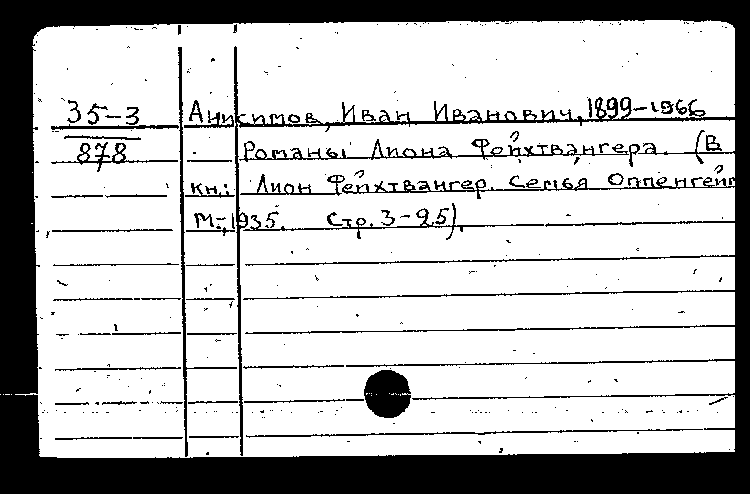 35-3 Анисимов, Иван Иванович, 1899-1966
878 Романы Лиона Фейхтвангера. (В
кн.: Лион Фейхтвангер. Семья Оппенгейм
М., 1935. Стр. 3-25).